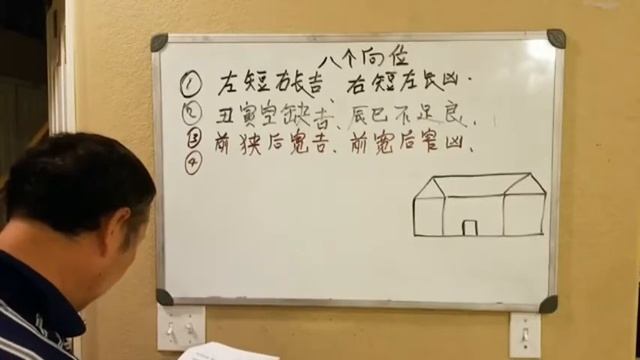 八个向位
① 左短右长吉、右短左长凶.
② 丑寅空缺吉、辰巳不足良.
③ 前狭后宽吉、前宽后窄凶.
④